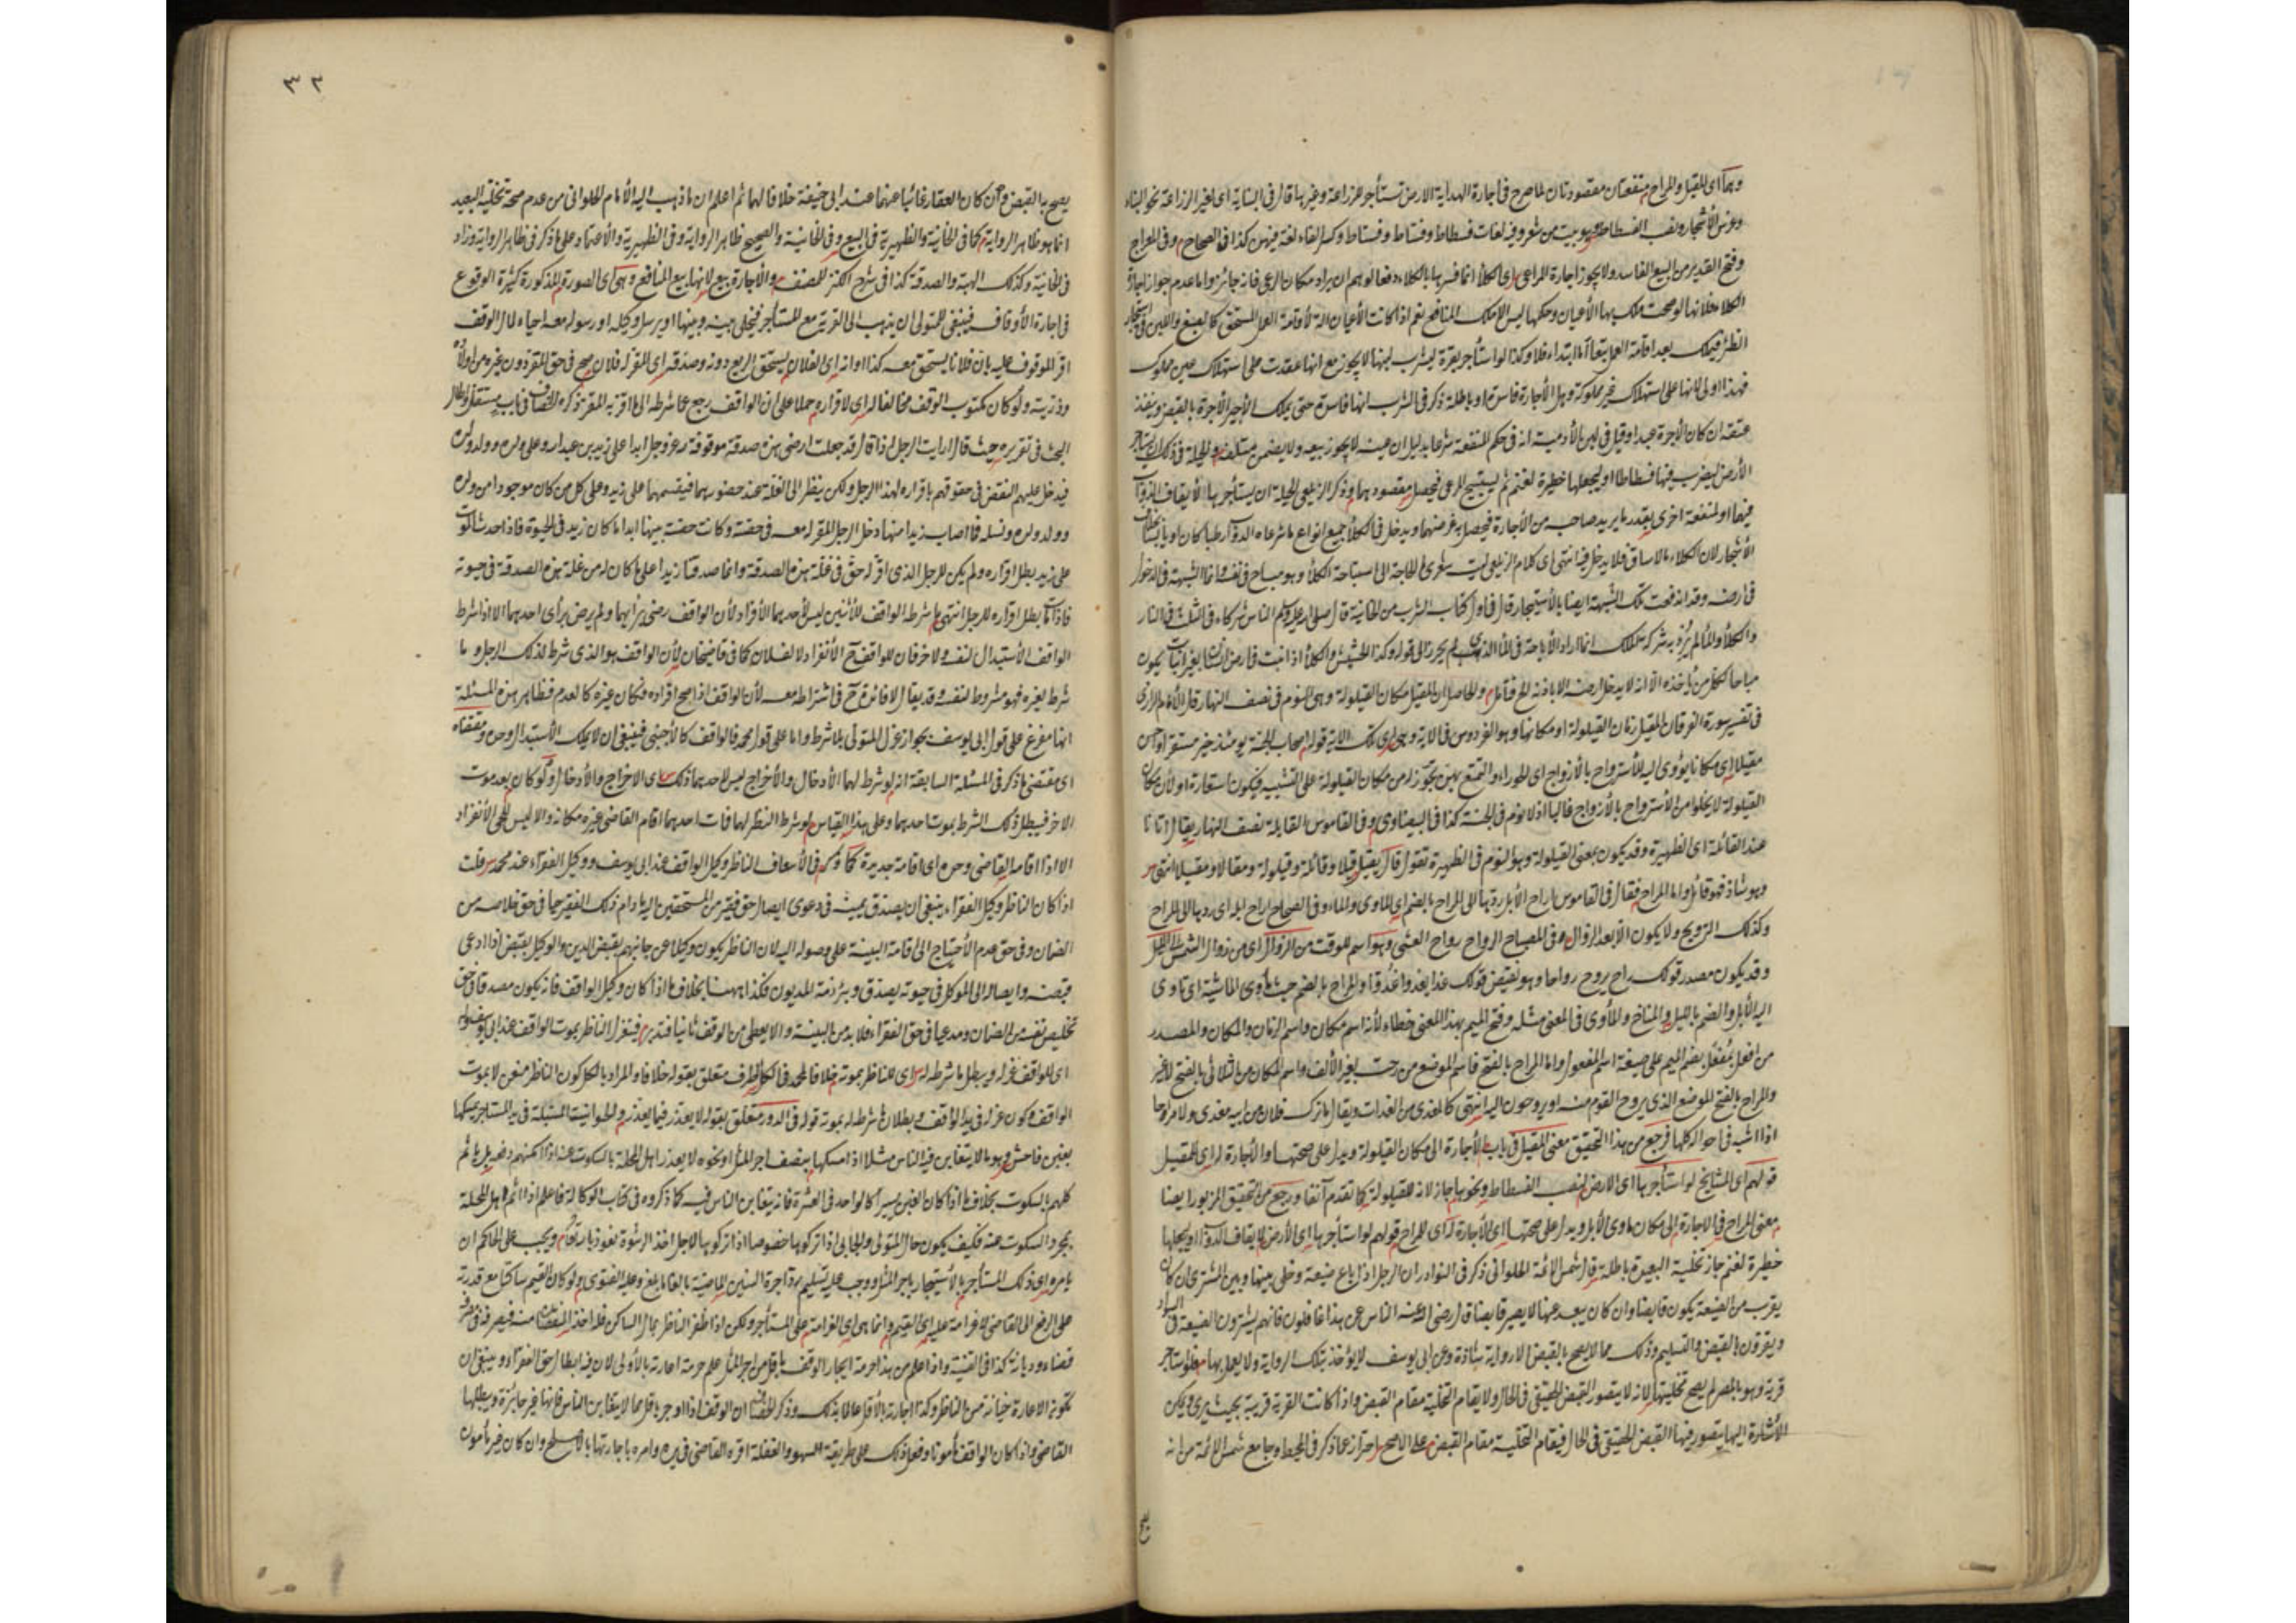 وهما اى المقيل والمراح منفعتان مقصودتان لما صرح فى اجارة الهداية الارض تستأجر للزراعة وغيرها قال فى البناية اى لغير الزراعة نحو البناء
وغرس الأشجار ونصب الفسطاط وهو بيت من شعر وفيه لغات فسطاط وفستاط وفساط وكسر الفاء لغة فيهن كذا فى الصحاح وفى المعراج
وفتح القدير من البيع الفاسد ولا يجوز اجارة المراعى اى الكلأ انما فسرها بالكلاء دفعا لوهم ان يراد مكان الرعى فانه جائز واما عدم جواز اجارة
الكلاء فلانها لو صحت ملك بها الأعيان وحكمها ليس الا ملك المنافع نعم اذا كانت الأعيان الة لأقامة العمل المستحق كالصبغ واللبن فى استيجار
الظئر فيملك بعد اقامة العمل تبعا أما ابتداء فلا وكذا لو استأجر بقرة ليشرب لبنها لا يجوز مع انها عقدت على استهلاك عين مملوك
فهذا اولى لانها على استهلاك غير مملوكة وهل الأجارة فاسدة او باطلة ذكر فى الشرب انها فاسدة حتى يملك الأجير الأجرة بالقبض وينفذ
عتقه ان كان الأجرة عبدا وقيل فى لبن الأدمية انه فى حكم المنفعة شرعا بدليل ان عينه لا يجوز بيعه ولا يضمن متلفه والحيلة فى ذلك ان يستأجر
الأرض ليضرب فيها فسطاطا او ليجعلها حظيرة لغنم ثم يستبيح المرعى فيحصل مقصودهما وذكر الزيلعى الحيلة ان يستأجرها لأيقاف الدواب
فيها او لمنفعة اخرى بقدر ما يريد صاحبه من الأجارة فيحصل به غرضهما ويدخل فى الكلأ جميع انواع ما يرعاه الدواب رطبا كان او يابسا بخلاف
الأشجار لان الكلاء ما لا ساق له فلا يدخل فيه انتهى اى كلام الزيلعى ليت شعرى ما الحاجة الى استباحة الكلأ وهو مباح فى نفسه وانما الشبهة فى الدخول
فى ارضه وقد اندفعت تلك الشبهة ايضا بالأستيجار قال فى اول كتاب الشرب من الخانية قال صلى الله عليه وسلم الناس شركاء فى الثلث فى النار
والكلأ والماء لم يرد به شركة تملك انما اراد الأباحة فى الماء الذى لم يحرز الى قوله وكذا الحشيش والكلأ اذا نبت فى ارض انسان بغير انبات يكون
مباحا لكل من يأخذه الا انه لا يدخل ارضه الا باذنه الخ فتأمل والحاصل ان المقيل مكان القيلولة وهى النوم فى نصف النهار قال الأمام الرازى
فى تفسير سورة الفرقان المقيل زمان القيلولة او مكانها وهو الفردوس فى الاية وهى اى تلك الاية قوله اصحاب الجنة يومئذ خير مستقرا واحسن
مقيلا اى مكانا يؤوى اليه للأسترواح بالأزواج اى الحوراء والتمتع بهن تجوز له من مكان القيلولة على التشبيه فيكون استعارة او لأن مكان
القيلولة لا يخلو من الأسترواح بالأزواج غالبا اذ لا نوم فى الجنة كذا فى البيضاوى وفى القاموس القايلة نصف النهار يقال اتانا
عند القائلة اى الظهيرة وقد يكون بمعنى القيلولة وهو النوم فى الظهيرة تقول قال يقيل قيلا وقائلة وقيلولة ومقالا ومقيلا انتهى
وهو شاذ فهو قائل واما المراح فقال فى القاموس اراح الأبل ردها الى المراح بالضم اى المأوى والماء وفى الصحاح اراح ابله اى ردها الى المراح
وكذلك الترويح ولا يكون الا بعد الزوال وفى المصباح الرواح رواح العشى وهو اسم للوقت من الزوال اى من زوال الشمس الى الليل
وقد يكون مصدر قولك راح يروح رواحا وهو نقيض قولك غدا يغدو غدوا والمراح بالضم حيث تأوى الماشية اى تاوى
اليه الأبل والغنم بالليل والمناخ والمأوى فى المعنى مثله وفتح الميم بهذا المعنى خطاء لأنه اسم مكان واسم الزمان والمكان والمصدر
من افعل مفعل بضم الميم على صيغة اسم المفعول واما المراح بالفتح فاسم الموضع من رحت بغير الألف واسم المكان من الثلاثى بالفتح لا غير
والمراح بالفتح الموضع الذى يروح القوم منه او يروحون اليه انتهى كالمغدى من الغداة ويقال ما ترك فلان من ابيه مغدى ولا مراحا
اذا اشبه فى احواله كلها فرجع من هذا التحقيق معنى المقيل فى باب الأجارة الى مكان القيلولة ويدل على صحتها والأجارة له اى للمقيل
قولهم اى المشايخ لو استأجرها اى الارض لنصب الفسطاط ونحوها جاز لانه للقيلولة كما تقدم آنفا ورجع من التحقيق المزبور ايضا
معنى المراح فى الاجارة الى مكان مأوى الأبل ويدل على صحتها اى الأجارة له اى للمراح قولهم لو استأجرها اى الأرض لايقاف الدواب او يجعلها
حظيرة لغنم جاز تخلية البعيدة باطلة قال شمس الائمة الحلوانى ذكر فى النوادر ان الرجل اذا باع ضيعة وخلى بينها وبين المشترى ان كان
يقرب من الضيعة يكون قابضا وان كان يبعد عنها لا يصير قابضا قال رضى الله عنه الناس عن هذا غافلون فانهم يشترون الضيعة فى السواد
ويقرون بالقبض والتسليم وذلك مما لا يصح به القبض الا رواية شاذة وعن ابى يوسف لا يؤخذ بتلك الرواية ولا يعمل بها فلو استأجر
قرية وهو بالمصر لم يصح تخليتها لانه لا يتصور القبض الحقيقى فى الحال ولا يقام التخلية مقام القبض واذا كانت القرية قريبة بحيث يرى ويمكن
الأشارة اليها يتصور فيها القبض الحقيقى فى الحال فيقام التخلية مقام القبض على الاصح احتراز عما ذكر فى المحيط وجامع شمس الائمة من انه
يصح
٣٢
يصح به القبض وان كان العقار غائبا عنهما عند ابى حنيفة خلافا لهما ثم اعلم ان ما ذهب اليه الأمام الحلوانى من عدم صحة تخلية البعيد
انما هو ظاهر الرواية كما فى الخانية والظهيرية فى البيع وفى الخانية والصحيح ظاهر الرواية وفى الظهيرية والاعتماد على ما ذكر فى ظاهر الرواية وزاد
فى الخانية وكذلك الهبة والصدقة كذا فى شرح الكنز للمصنف والأجارة بيع لانها بيع المنافع وهى اى الصورة المذكورة كثيرة الوقوع
فى اجارة الأوقاف فينبغى للمتولى ان يذهب الى القرية مع المستأجر فيخلى بينه وبينها او يرسل وكيله او رسوله معه احياء لمال الوقف
اقر الموقوف عليه بان فلانا يستحق معه كذا او انه اى الفلان يستحق الريع دونه وصدقه اى المقر له فلان صح فى حق المقر دون غيره من اولاده
وذريته ولو كان مكتوب الوقف مخالفا له اى لاقراره حملا على ان الواقف رجع عما شرطه الى ما اقر به المقر ذكره الخصاف فى باب مستقل واطال
البحث فى تقريره حيث قال ارأيت الرجل اذا قال قد جعلت ارضى هذه صدقة موقوفة لله عز وجل ابدا على زيد بن عبدالله وعلى ولده وولد ولده
فيدخل عليهم النقض فى حقوقهم باقراره لهذا الرجل ولكن ينظر الى الغلة عند حضورها فيقسمها على زيد وعلى كل من كان موجودا من ولده
وولد ولده ونسله فما اصاب زيدا منها دخل الرجل المقر له معه فى حصته وكانت حصته بينهما ابدا ما كان زيد فى الحيوة فاذا حدث الموت
على زيد بطل اقراره ولم يكن للرجل الذى اقر له حق فى غلة هذه الصدقة وانما صدقنا زيدا على ما كان له من غلة هذه الصدقة فى حيوته
فاذا مات بطل اقراره للرجل انتهى ما شرطه الواقف لأثنين ليس لأحدهما الأنفراد لأن الواقف رضى برأيهما ولم يرض برأى احدهما الا اذا شرط
الواقف الأستبدال لنفسه ولآخر فان للواقف ح الأنفراد لا لفلان كما فى قاضيخان لأن الواقف هو الذى شرط لذلك الرجل وما
شرط لغيره فهو مشروط لنفسه وقد يقال لا فائدة ح فى اشتراطه معه لأن الواقف اذا صح افراده فكان غيره كالعدم فظاهر هذه المسئلة
انها مفرع على قول ابى يوسف بجواز عزل المتولى بلا شرط واما على قول محمد فالواقف كالأجنبى فينبغى ان لا يملك الأستبدال وحده ومقتضاه
اى مقتضى ما ذكر فى المسئلة السابقة انه لو شرط لهما الأدخال والأخراج ليس لاحدهما ذلك اى الاخراج والأدخال ولو كان بعد موت
الاخر فيبطل ذلك الشرط بموت احدهما وعلى هذا القياس لو شرط النظر لهما فمات احدهما اقام القاضى غيره مكانه والا ليس للحى الأنفراد
الا اذا اقامه القاضى وحده اى اقامة جديدة كما ذكره فى الأسعاف الناظر وكيل الواقف عند ابى يوسف ووكيل الفقراء عند محمد قلت
اذا كان الناظر وكيل الفقراء ينبغى ان يصدق بيمينه فى دعوى ايصال حق فقير من المستحقين اليه ما دام ذلك الفقير حيا فى حق خلاصه من
الضمان وفى حق عدم الأحتياج الى اقامة البينة على وصوله اليه لان الناظر يكون وكيلا عن جانبهم بقبض الدين والوكيل بقبض اذا ادعى
قبضه وايصاله الى الموكل فى حيوته يصدق ويبرئ ذمة المديون فكذا ههنا بخلاف ما اذا كان وكيل الواقف فانه يكون مصدقا فى حق
تخليص نفسه من الضمان ومدعيا فى حق الفقراء فلا بد من البينة والا يعطى من الوقف ثانيا فتدبر فينعزل الناظر بموت الواقف عند ابى يوسف وله
اى للواقف عزله ويبطل ما شرطه له اى للناظر بموته خلافا لمحمد فى الكل الظرف متعلق بقوله خلافا والمراد بالكل كون الناظر منعزلا بموت
الواقف وكون عزله فى يد الواقف وبطلان شرطه له بموته قوله فى الدور متعلق بقوله لا يعذر فيما يعذر والحوانيت المسبلة فى يد المستأجر يمسكها
بغبن فاحش وهو ما لا يتغابن فيه الناس مثلا اذا امسكها بنصف اجر المثل او نحوه لا يعذر اهل المحلة بالسكوت عنه اذا امكنهم دفعه بل يأثم
كلهم بالسكوت بخلاف ما اذا كان الغبن يسيرا كالواحد فى العشرة فانه يتغابن الناس فيه كما ذكروه فى كتاب الوكالة فاعلم اذا اثم اهل المحلة
بمجرد السكوت عنه فكيف يكون حال المتولى والجابى اذا تركوها خصوصا اذا تركوها لاجل اخذ الرشوة نعوذ بالله تعالى ويجب على الحاكم ان
يامره اى ذلك المستأجر بالأستيجار باجر المثل ووجب عليه تسليم زيادة اجرة السنين الماضية بالغا ما بلغ وعليه الفتوى ولو كان القيم ساكتا مع قدرته
على الرفع الى القاضى لا غرامة عليه اى القيم وانما هى اى الغرامة على المستأجر ولكن اذا ظفر الناظر بمال الساكن فله اخذ النقصان منه فيصرفه فى مصرفه
قضاء وديانة كذا فى القنية واذا علم من هذا حرمة ايجار الوقف باقل من اجر المثل علم حرمة اعارته بالأولى لان فيه ابطال حق الفقراء وينبغى ان
تكون الاعارة خيانة من الناظر وكذا اجارته بالأقل عالما بذلك وذكر الخصاف ان الوقف اذا اوجر باقل مما لا يتغابن الناس فانها غير جائزة ويبطلها
القاضى واذا كان الواقف مأمونا وفعل ذلك على طريقة السهو والغفلة اقره القاضى فى يده وامره باجارتها بالأصلح وان كان غير مأمون